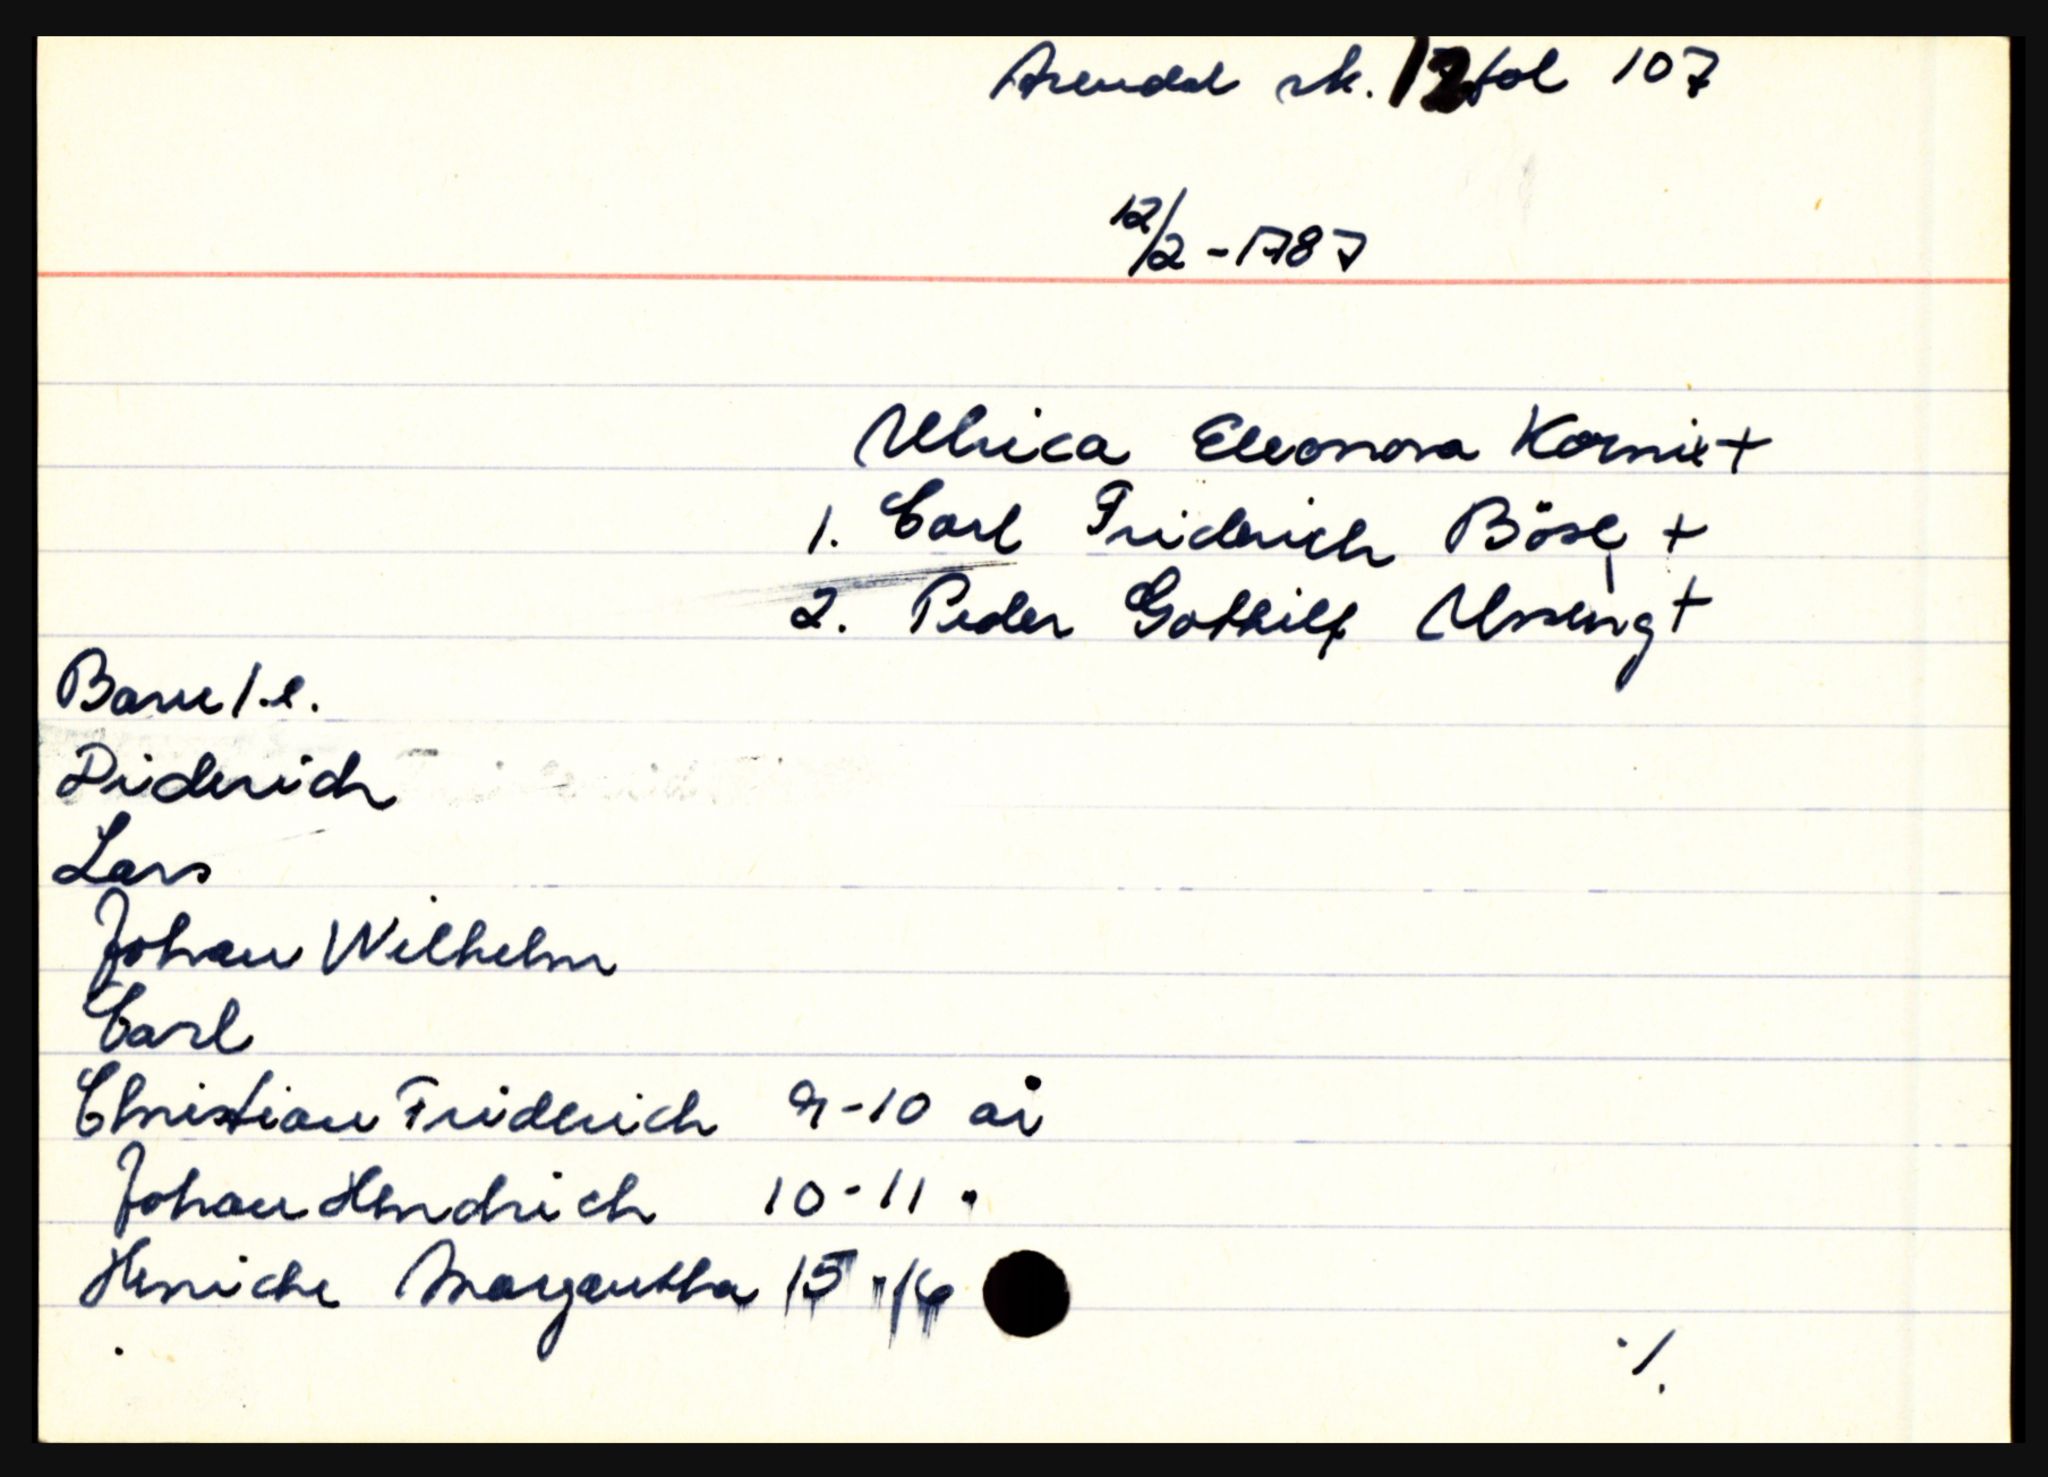 Arendal sk. 12 fol 107
12/2 - 1787
Ulrica Eleonora Kornit +
1. Carl Friderich Böse, +
2. Peder Gothilf Ussing +
Barn 1.e.
Diderich
Lars
Johan Wilhelm
Carl
Christian Friderich 9-10 år
Johan Hendrich 10-11 "
Henriche Margaretha 15-16
./.